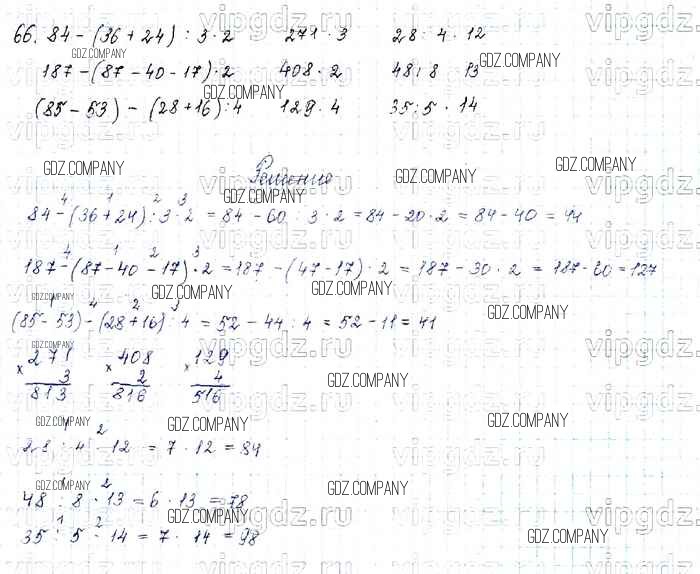 66. 84 - (36 + 24) : 3 · 2 271 · 3 28 : 4 · 12
187 - (87 - 40 - 17) · 2 408 · 2 48 : 8 · 13
(85 - 53) - (28 + 16) : 4 129 · 4 35 : 5 · 14
Решение
84 - (36 + 24) : 3 · 2 = 84 - 60 : 3 · 2 = 84 - 20 · 2 = 84 - 40 = 44
187 - (87 - 40 - 17) · 2 = 187 - (47 - 17) · 2 = 187 - 30 · 2 = 187 - 60 = 127
(85 - 53) - (28 + 16) : 4 = 52 - 44 : 4 = 52 - 11 = 41
× 271 × 408 × 129
3 2 4
813 816 516
28 : 4 · 12 = 7 · 12 = 84
48 : 8 · 13 = 6 · 13 = 78
35 : 5 · 14 = 7 · 14 = 98
GDZ.COMPANY
vipgdz.ru